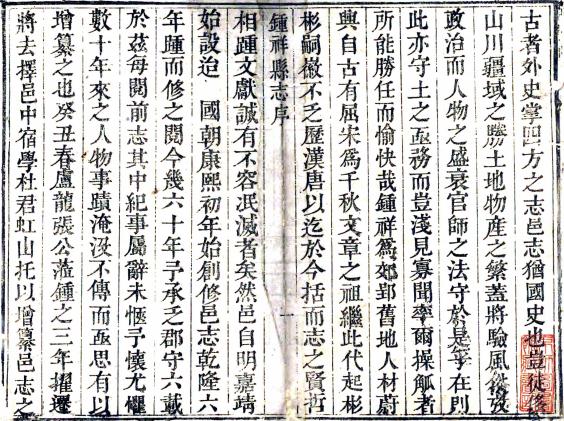 古者外史掌四方之志邑志猶國史也豈徒
山川疆域之勝土地物産之繁蓋將驗風
政治而人物之盛衰官師之法守於是乎在則
此亦守土之亟務而豈淺見寡聞率爾操觚者
所能勝任而愉快哉鍾祥爲郊郢舊地人材蔚
興自古有屈宋爲千秋文章之祖繼此代起彬
彬嗣徽不乏歷漢唐以迄於今括而志之賢哲
鍾祥縣志序 一
相踵文獻誠有不容泯滅者矣然邑自明嘉靖
始設迨 國朝康熙初年始創修邑志乾隆六
年踵而修之閱今幾六十年予承乏郡守六載
於茲每閱前志其中紀事屬辭未愜予懷尤懼
數十年來之人物事蹟淹没不傳而亟思有以
增纂之也癸丑春盧龍張公涖鍾之三年擢遷
將去擇邑中宿學杜君虹山托以增纂邑志之